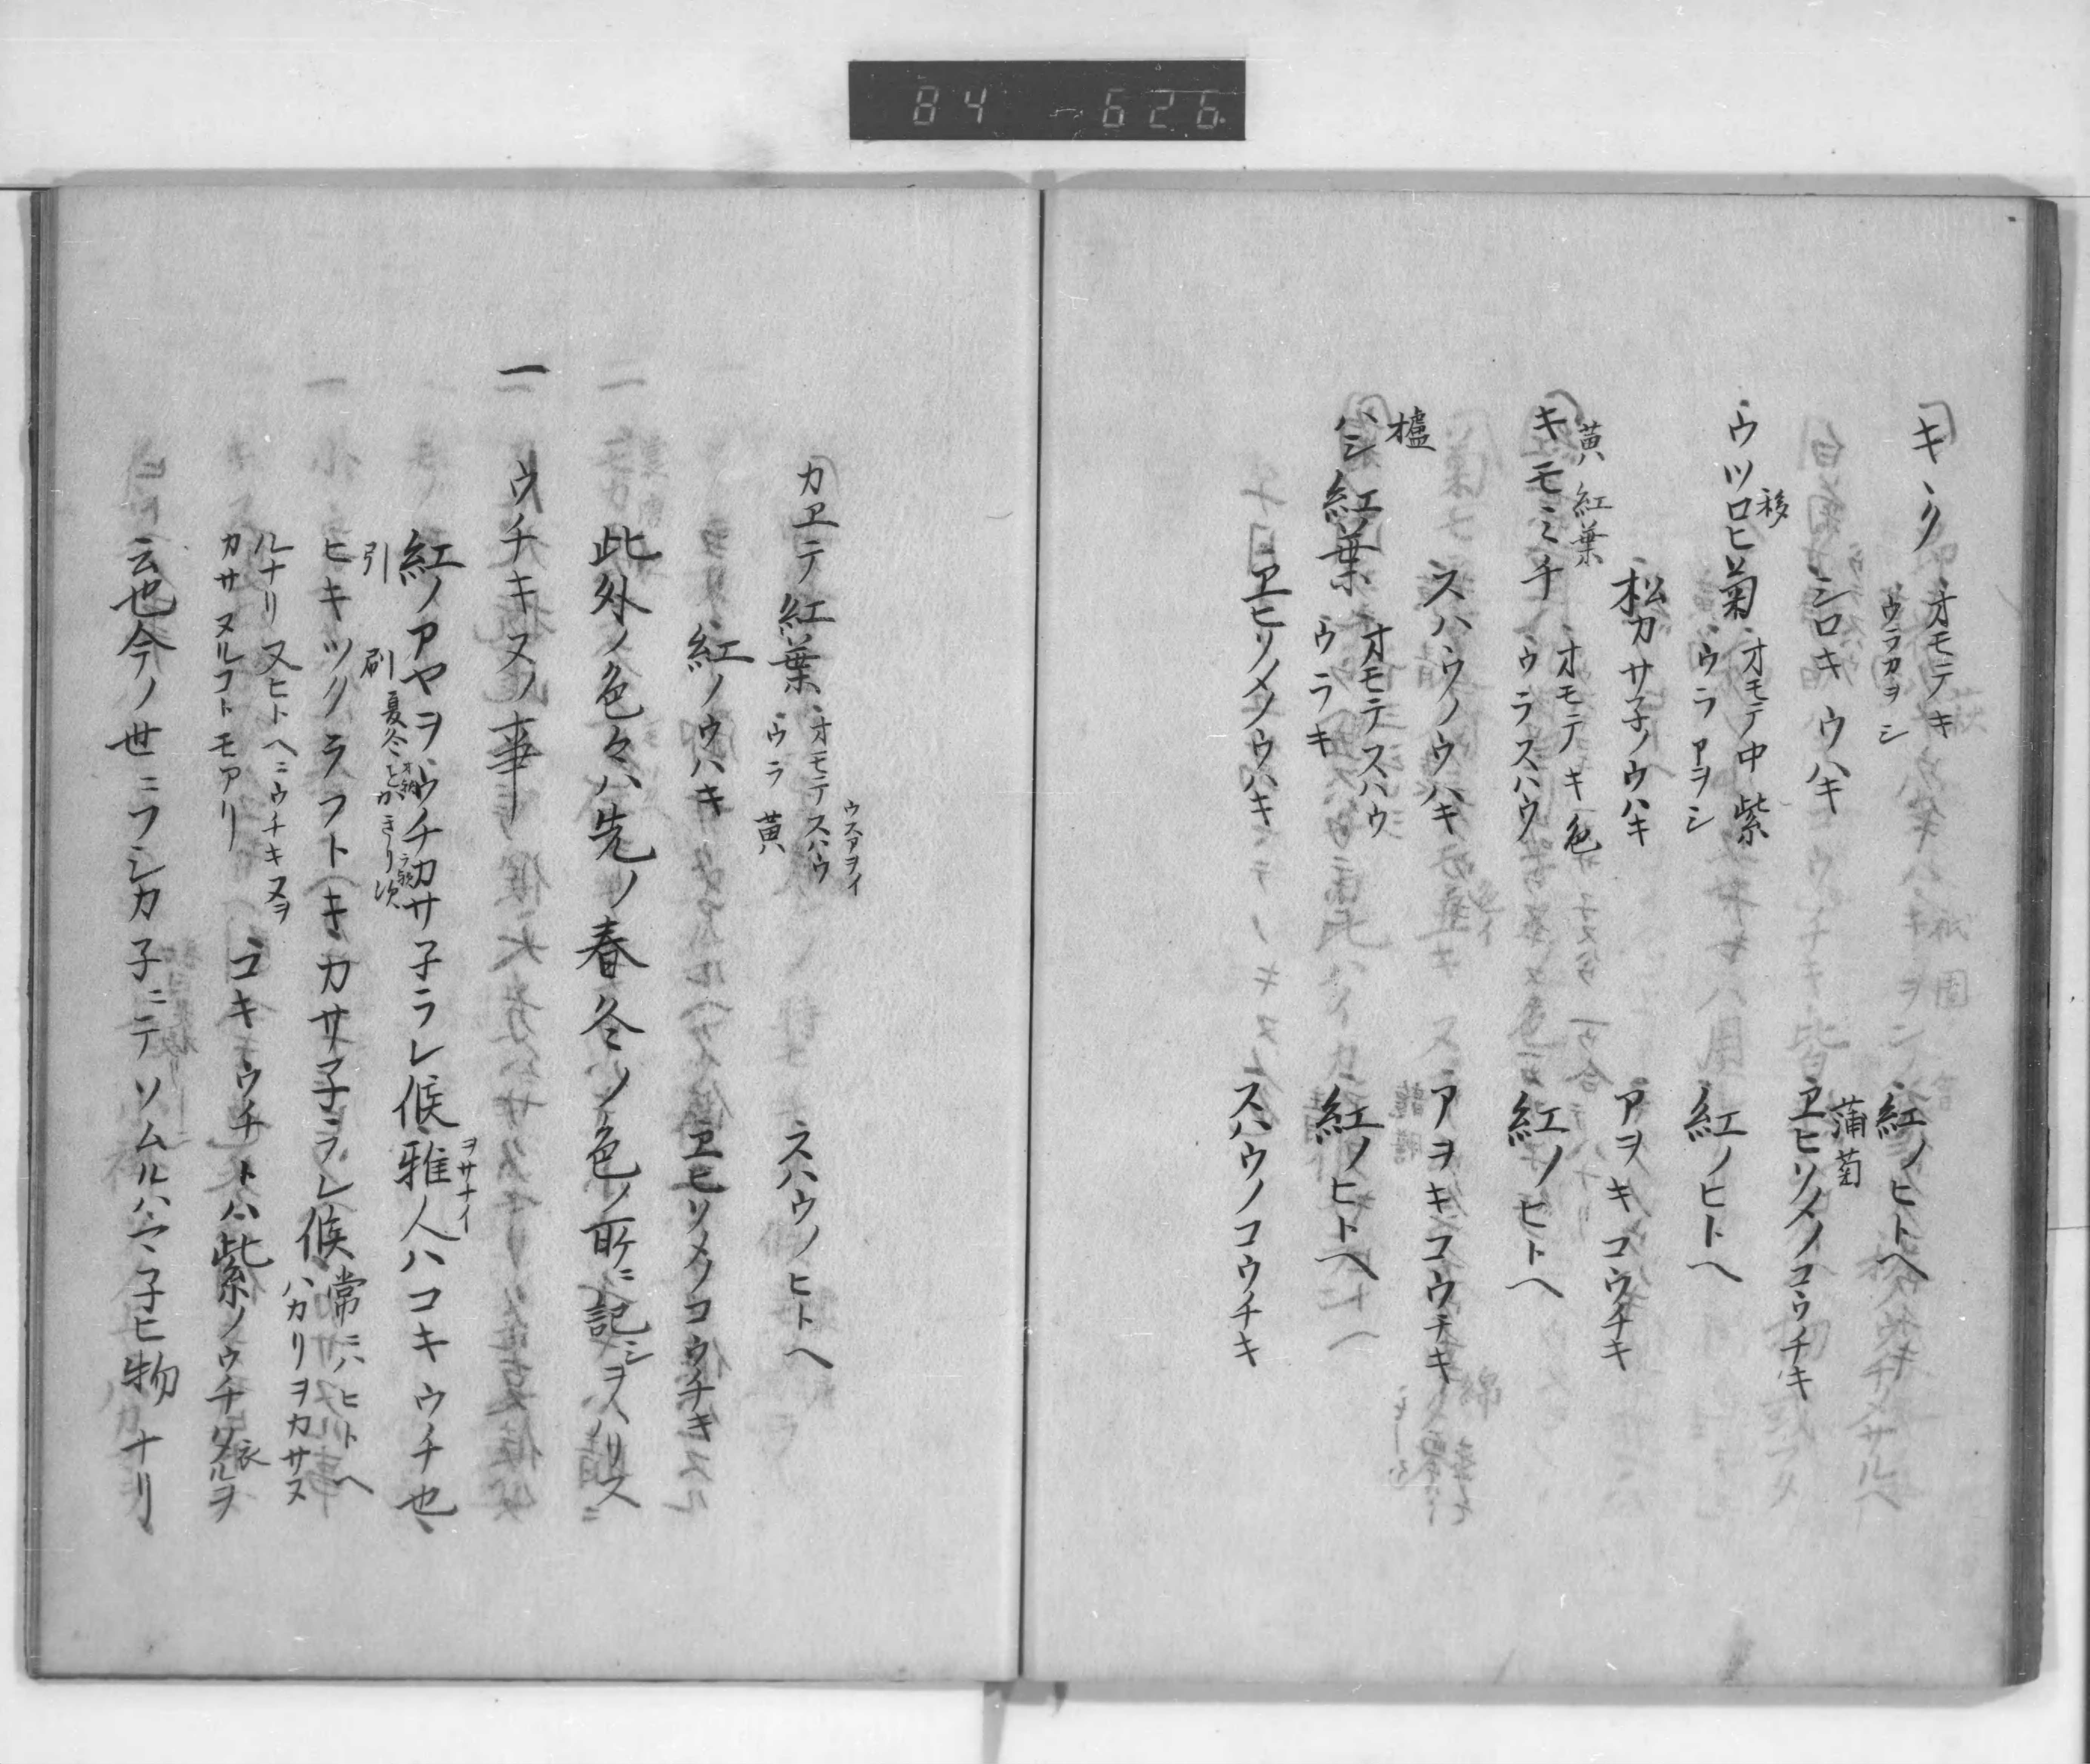 84 - 626
キヽク オモテキ ウラカヲシ 紅ノヒトヘ
シロキウハキ ヱヒソメノコウチキ
蒲菊
移
ウツロヒ菊 オモテ中紫 ウラアヲシ 紅ノヒトヘ
松カサ子ノウハキ アヲキコウチキ
黄紅葉
キモミチ オモテキ一色 ウラスハウ 紅ノヒトヘ
スハウノウハキ アヲキコウチキ
櫨
ハシ紅葉 オモテスハウ ウラキ 紅ノヒトヘ
ヱヒソメノウハキ スハウノコウチキ
ウスアヲイ
カヱテ紅葉 オモテスハウ ウラ黄 スハウノヒトヘ
紅ノウハキ ヱヒソメノコウチキ
此外ノ色々ハ先ノ春冬ノ色ノ所ニ記シヲハリヌ
一 ウチキヌノ事
ヲサナイ
紅ノアヤヲウチカサ子ラレ候雅人ハコキウチ也
引 刷 夏冬
ヒキツクラフトキカサ子ラレ候 常ニハヒトヘ ハカリヲカサヌ
ルナリ又ヒトヘニウチキヌヲ カサヌルコトモアリ コキウチトハ紫ノウチタルヲ
衣
云也今ノ世ニフシカ子ニテソムルハマ子ヒ物ナリ